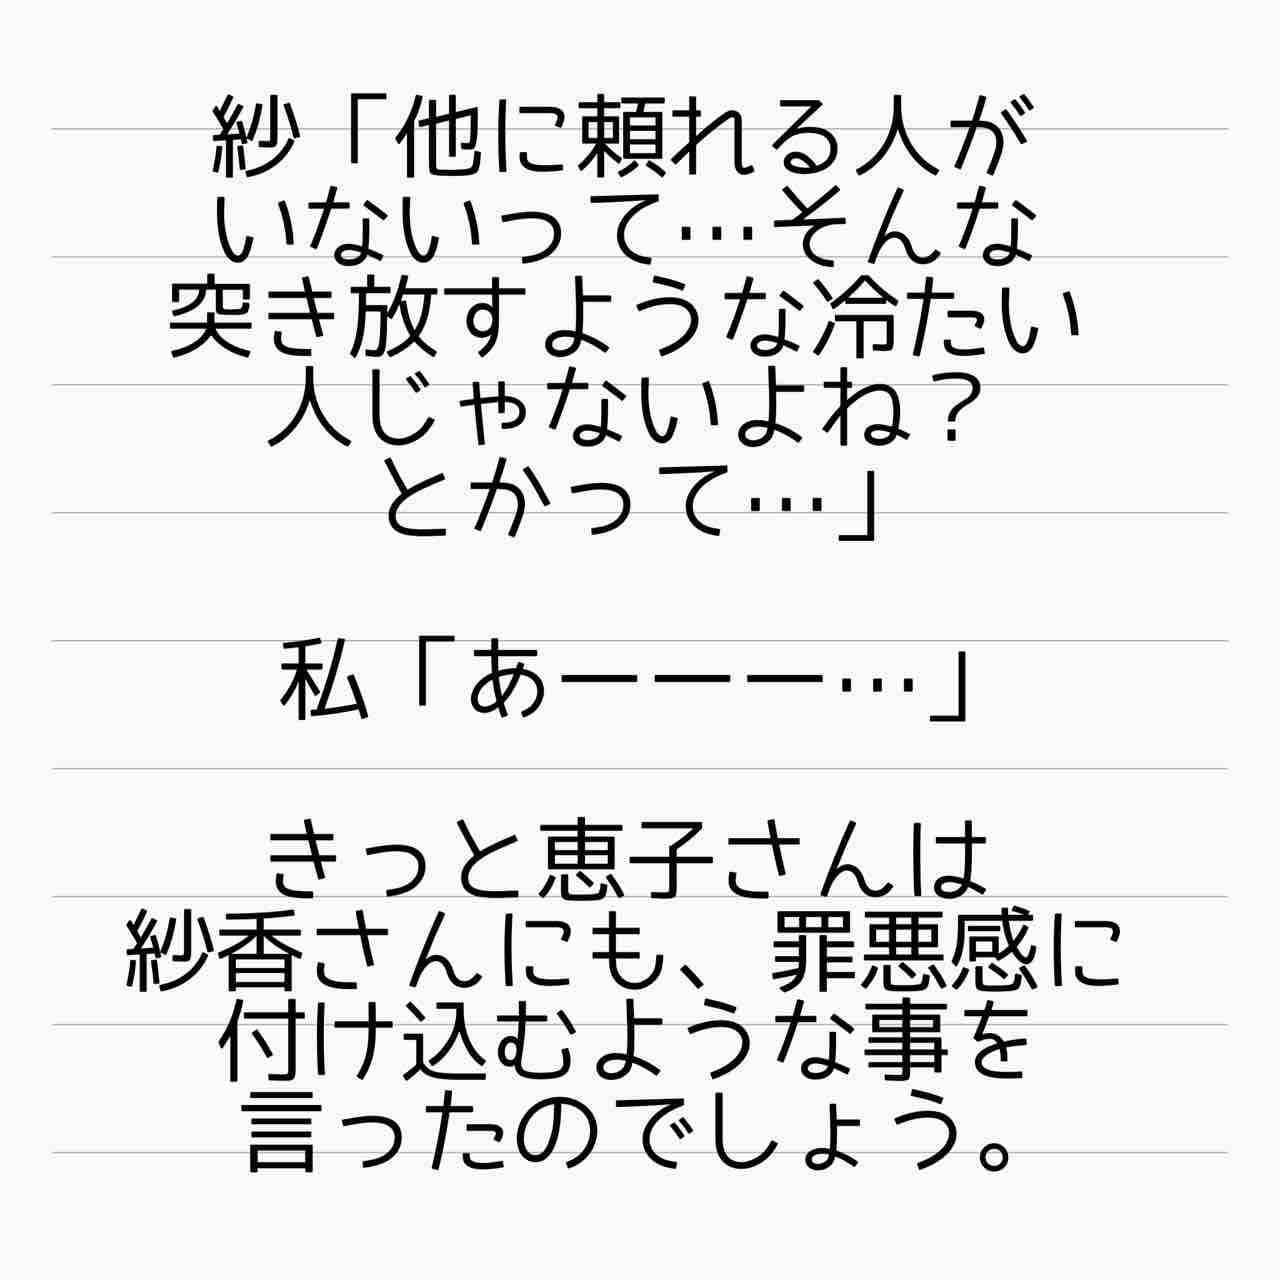 紗「他に頼れる人が
いないって…そんな
突き放すような冷たい
人じゃないよね？
とかって…」
私「あーーー…」
きっと恵子さんは
紗香さんにも、罪悪感に
付け込むような事を
言ったのでしょう。